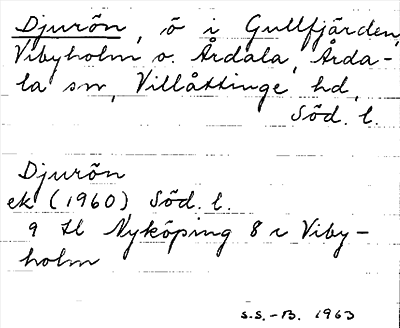 Djurön, ö i Gullfjärden,
Vibyholm o. Årdala, Årda-
la sn, Villåttinge hd,
Söd. l.
Djurön
ek (1960) Söd. l.
9 H Nyköping 8 c Viby-
holm
S.S.-B. 1963